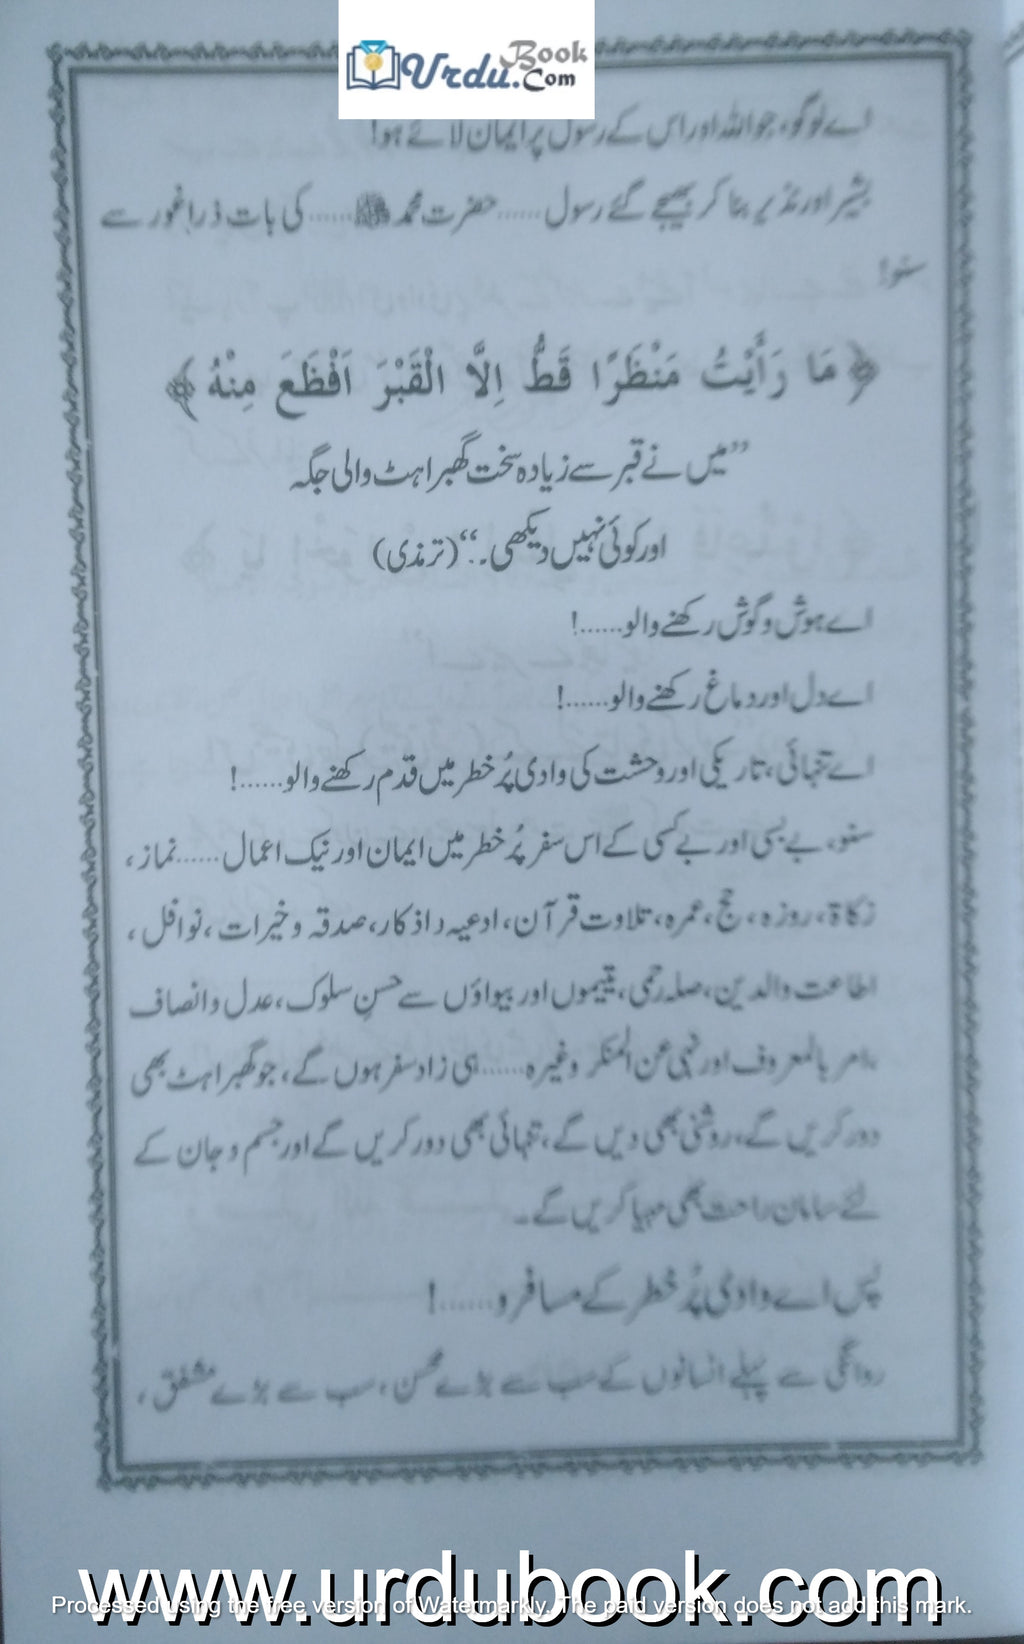 Urdu Book.Com
اے لوگو، جو اللہ اور اس کے رسول پر ایمان لائے ہو!
بشیر اور نذیر بنا کر بھیجے گئے رسول ...... حضرت محمد ﷺ ...... کی بات ذرا غور سے
سنو!
﴿ مَا رَأَيْتُ مَنْظَرًا قَطُّ اِلَّا الْقَبْرَ اَفْظَعَ مِنْهُ ﴾
”میں نے قبر سے زیادہ سخت گھبراہٹ والی جگہ
اور کوئی نہیں دیکھی۔“ (ترمذی)
اے ہوش و گوش رکھنے والو......!
اے دل اور دماغ رکھنے والو......!
اے تنہائی، تاریکی اور وحشت کی وادی پُر خطر میں قدم رکھنے والو......!
سنو، بے بسی اور بے کسی کے اس سفر پُر خطر میں ایمان اور نیک اعمال ...... نماز،
زکاۃ، روزہ، حج، عمرہ، تلاوت قرآن، ادعیہ و اذکار، صدقہ و خیرات، نوافل،
اطاعت والدین، صلہ رحمی، یتیموں اور بیواؤں سے حسنِ سلوک، عدل و انصاف
امر بالمعروف اور نہی عن المنکر وغیرہ...... ہی زاد سفر ہوں گے، جو گھبراہٹ بھی
دور کریں گے، روشنی بھی دیں گے، تنہائی بھی دور کریں گے اور جسم و جان کے
لئے سامان راحت بھی مہیا کریں گے۔
پس اے وادی پُر خطر کے مسافرو......!
روانگی سے پہلے انسانوں کے سب سے بڑے محسن، سب سے بڑے مشفق،
www.urdubook.com
Processed using the free version of Watermarkly. The paid version does not add this mark.